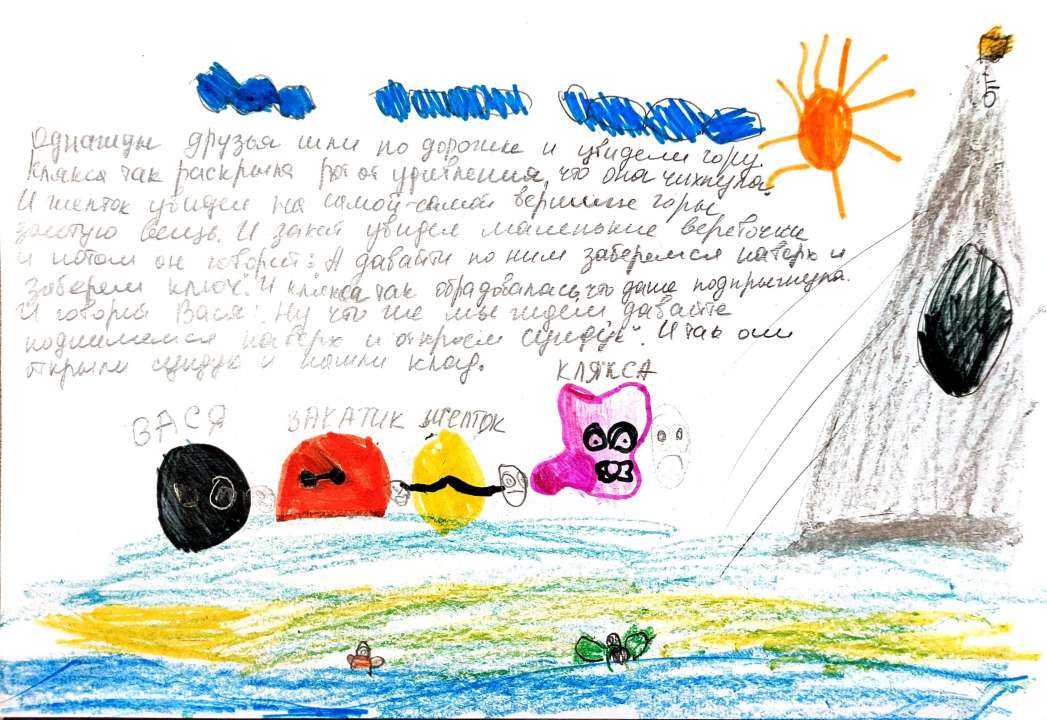 Однажды друзья шли по дорожке и увидели гору.
Клякса так раскрыла рот от удивления, что она чихнула.
И желток увидел на самой-самой вершине горы
золотую вещь. И закат увидел маленькие веревочки
и потом он говорит: А давайти по ним заберемся наверх и
заберем ключ. И клякса так обрадовалась, что даже подпрыгнула.
И говорит Вася: Ну что же мы ждем давайте
поднимемся наверх и откроем сундук". И так они
открыли сундук и нашли клад.
КЛЯКСА
ВАСЯ ЗАКАТИК ЖЕЛТОК